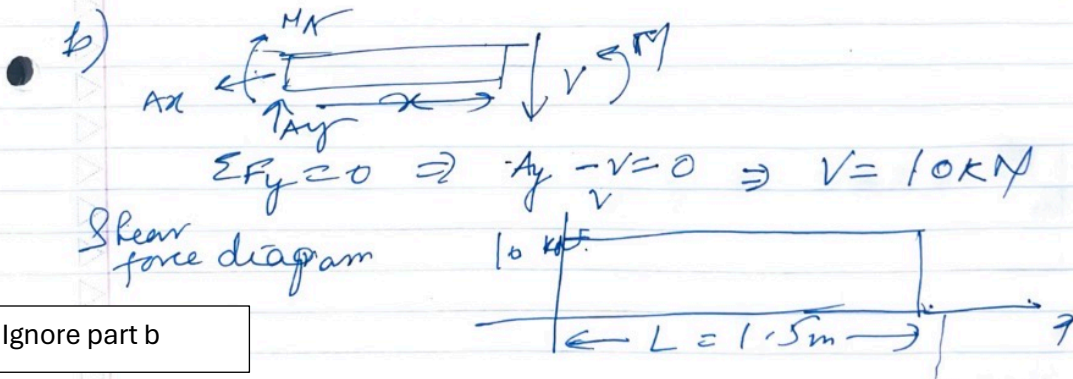 b)
M
Ax
Ay
x
V
M
ΣFy=0 ⇒ Ay -V=0 ⇒ V=10KN
V
Shear
force diagram
10 KN
L=1.5m
Ignore part b